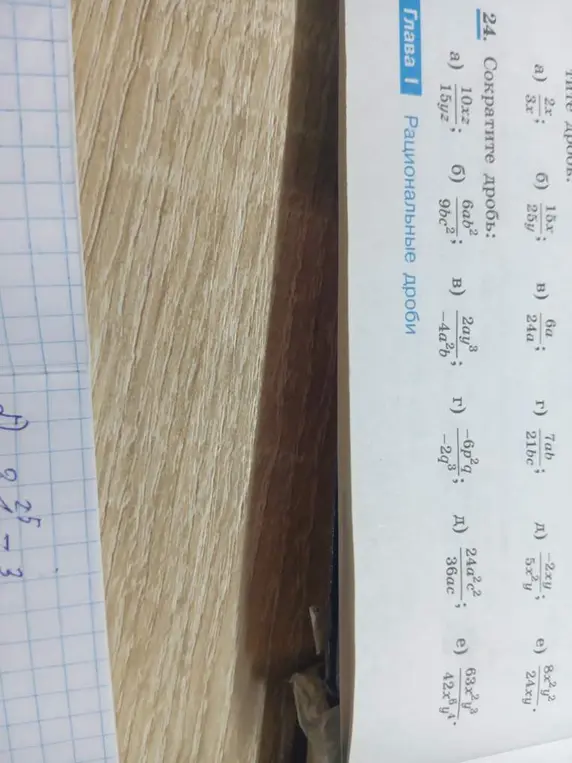 дробь.
а) 2x/3x; б) 15x/25y; в) 6a/24a; г) 7ab/21bc; д) -2xy/5x²y; е) 8x²y²/24xy.
24. Сократите дробь:
а) 10xz/15yz; б) 6ab²/9bc²; в) 2ay³/-4a²b; г) -6p²q/-2q³; д) 24a²c²/36ac; е) 63x²y³/42x⁶y⁴.
Глава I Рациональные дроби